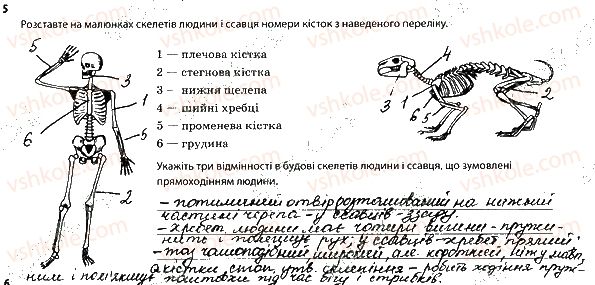 5
Розставте на малюнках скелетів людини і ссавця номери кісток з наведеного переліку.
1 — плечова кістка
2 — стегнова кістка
3 — нижня щелепа
4 — шийні хребці
5 — променева кістка
6 — грудина
5
3
1
6
5
2
4
3
1
6
5
2
Укажіть три відмінності в будові скелетів людини і ссавця, що зумовлені
прямоходінням людини.
- потиличний отвір розташований на нижній
частині черепа - у ссавців - ззаду.
- хребет людини має чотири вигини - пружи-
нить і полегшує рух, у ссавців - хребет прямий
- таз чашоподібний, широкий, але коротший, ніж у мавп,
кістки стоп утв. склепіння - робить ходіння пруж-
ним і пом'якшує поштовхи під час бігу і стрибків.
vshkole.com